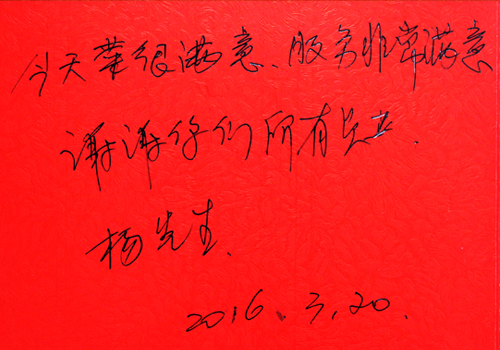 今天菜很满意、服务非常满意
谢谢你们所有员工.
杨先生.
2016.3.20.